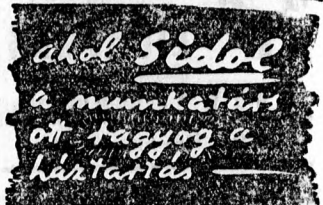 ahol Sidol
a munkatárs
ott ragyog a
háztartás —